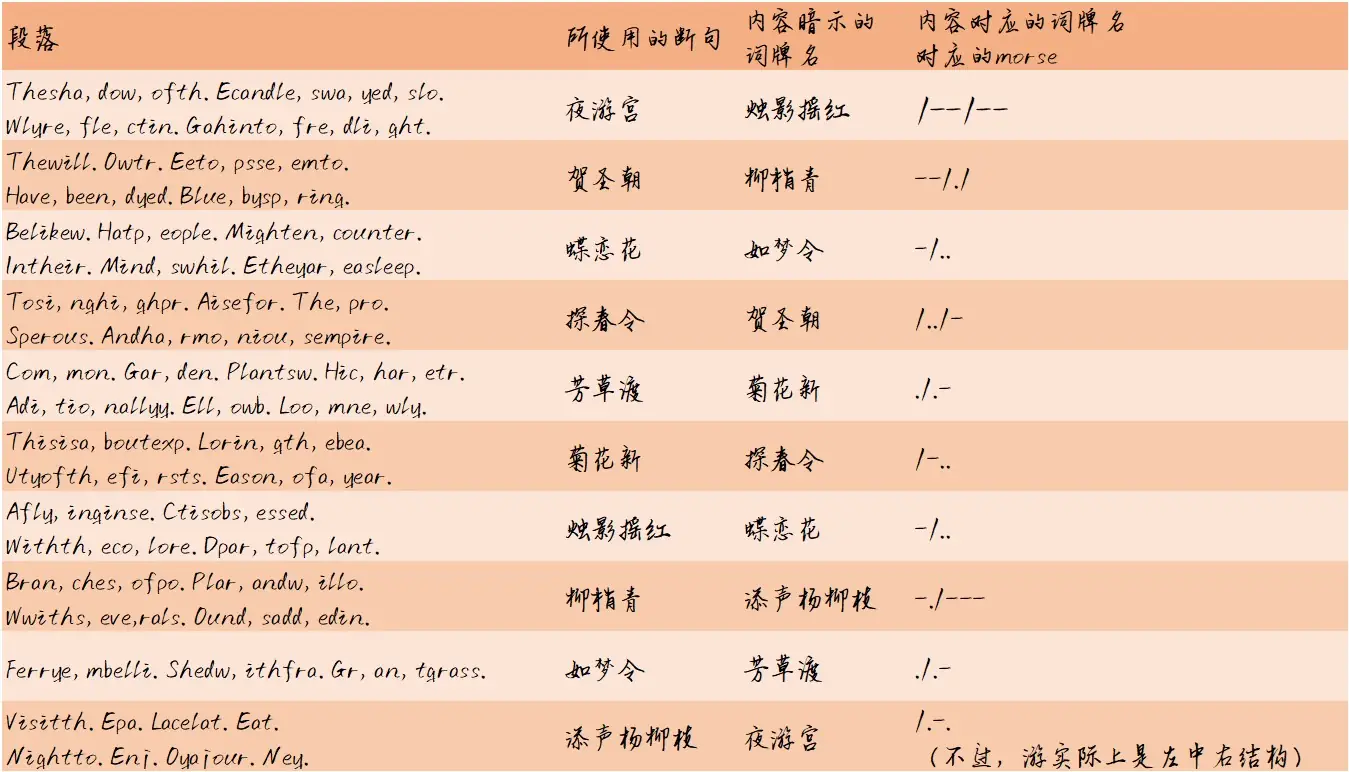 段落 所使用的断句 内容暗示的 内容对应的词牌名
词牌名 对应的morse
Thesha, dow, ofth. Ecandle, swa, yed, slo.
Wlyre, fle, ctin. Gahinto, fre, dli, ght.
夜游宫 烛影摇红 /--/--
Thewill. Owtr. Eeto, psse, emto.
Have, been, dyed. Blue, bysp, ring.
贺圣朝 柳梢青 --/./
Belikew. Hatp, eople. Mighten, counter.
Intheir. Mind, swhil. Etheyar, easleep.
蝶恋花 如梦令 -/..
Tosi, nghi, ghpr. Aisefor. The, pro.
Sperous. Andha, rmo, niou, sempire.
探春令 贺圣朝 /../-
Com, mon. Gar, den. Plantsw. Hic, har, etr.
Adi, tio, nallyy. Ell, owb. Loo, mne, wly.
芳草渡 菊花新 ./.-
Thisisa, boutexp. Lorin, gth, ebea.
Utyofth, efi, rsts. Eason, ofa, year.
菊花新 探春令 /-..
Afly, inginse. Ctisobs, essed.
Withth, eco, lore. Dpar, tofp, lant.
烛影摇红 蝶恋花 -/..
Bran, ches, ofpo. Plar, andw, illo.
Wwiths, eve,rals. Ound, sadd, edin.
柳梢青 添声杨柳枝 -./---
Ferrye, mbelli. Shedw, ithfra. Gr, an, tgrass. 如梦令 芳草渡 ./.-
Visitth. Epa. Lacelat. Eat.
Nightto. Enj. Oyajour. Ney.
添声杨柳枝 夜游宫 /.-.
（不过，游实际上是左中右结构）